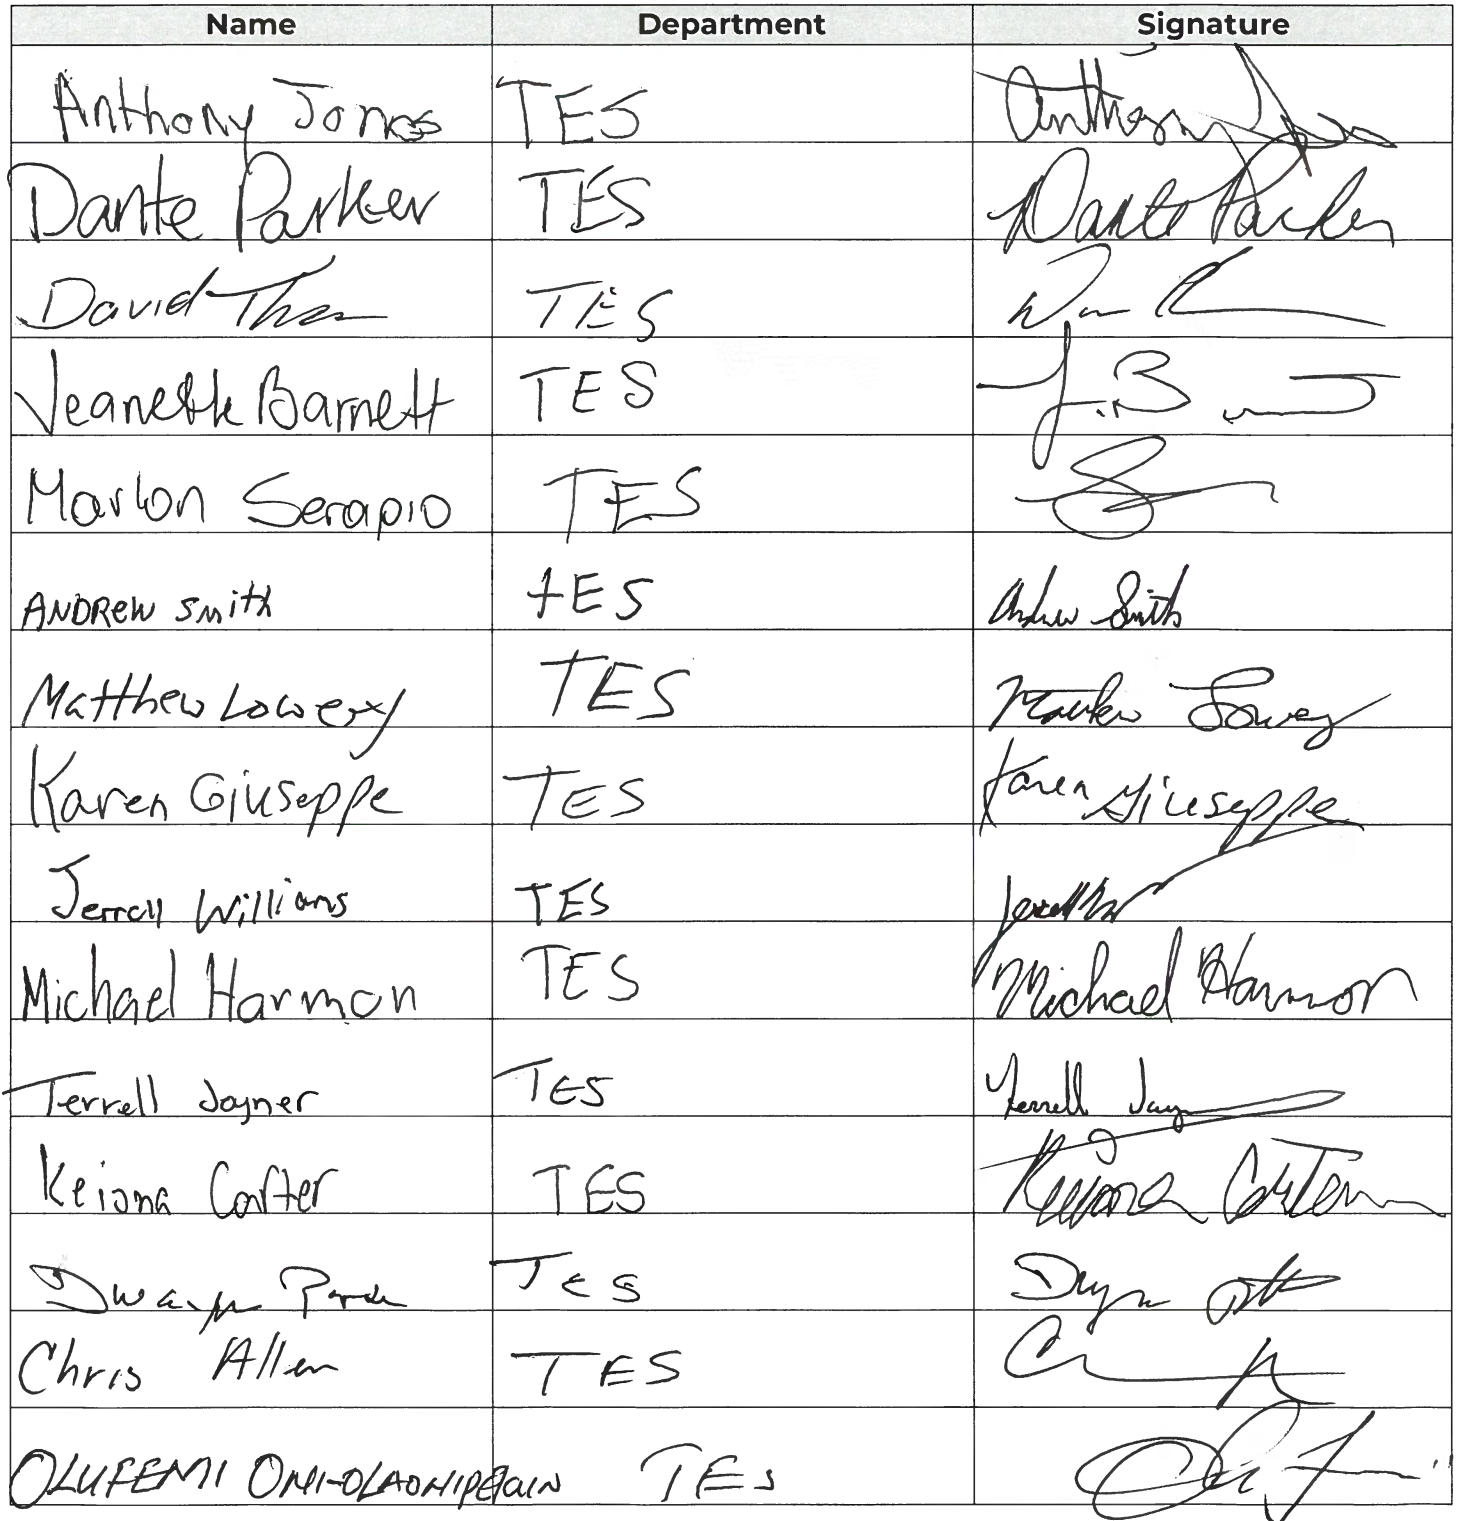 Name Department Signature
Anthony Jones TES Anthony Jones
Dante Parker TES Dante Parker
David TES
Jeanette Barnett TES J. B
Marlon Serapio TES
ANDREW smith tES Andrew Smith
Matthew Lowery TES Matthew Lowery
Karen Giuseppe TES Karen Giuseppe
Jerrell Williams TES Jerrell
Michael Harmon TES Michael Harmon
Terrell Joyner TES Terrell Joy
Keiona Carter TES Keiona Carter
Dwayne TES
Chris Allen TES
OLUFEMI TES